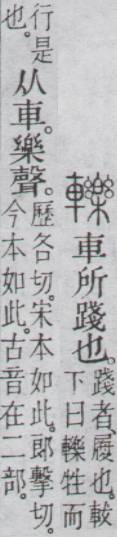 轢 車所踐也。
踐者、履也。軷
下曰轢牲而
行是
也。
从車。樂聲。
歷各切。宋本如此。郎擊切。
今本如此。古音在二部。